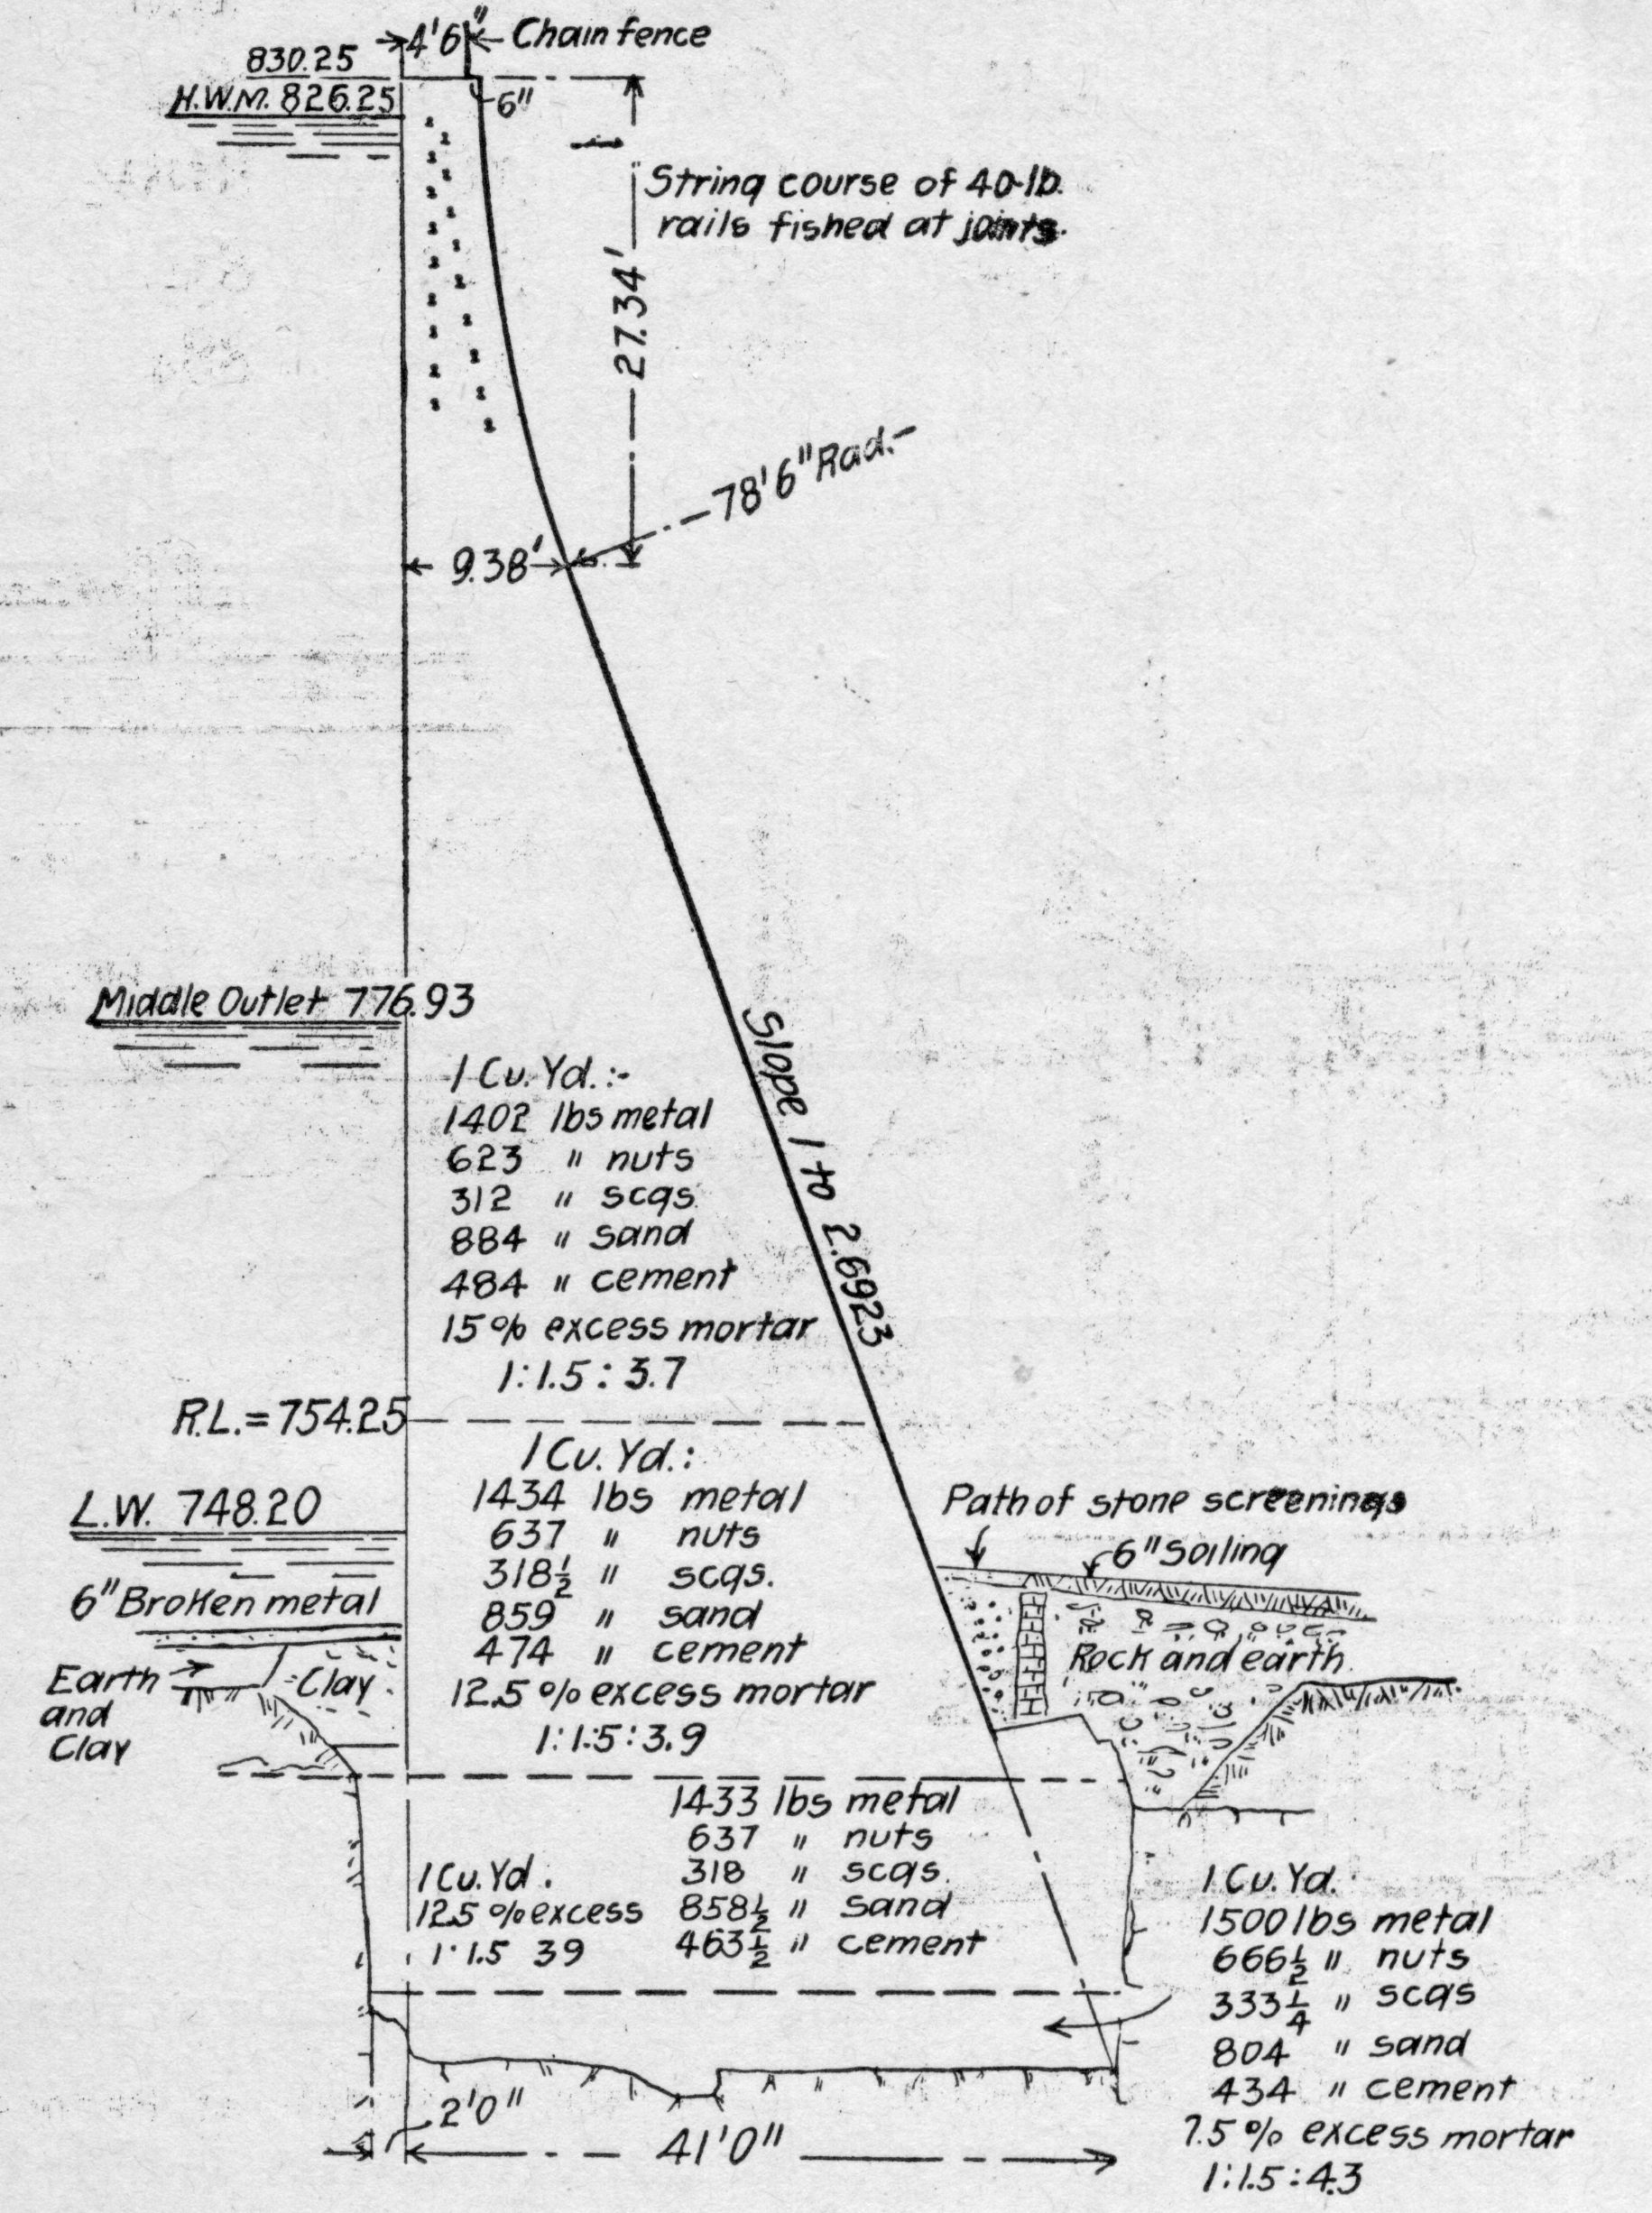 4'6" Chain fence
830.25
H.W.M. 826.25
6"
String course of 40-lb.
rails fished at joints.
27.34'
78'6" Rad.
9.38'
Middle Outlet 776.93
Slope 1 to 2.6923
1 Cu. Yd.:-
1402 lbs metal
623 " nuts
312 " scgs
884 " sand
484 " cement
15% excess mortar
1:1.5:3.7
R.L.=754.25
1 Cu. Yd.:
1434 lbs metal
637 " nuts
318½ " scgs.
859 " sand
474 " cement
12.5% excess mortar
1:1.5:3.9
L.W. 748.20
6" Broken metal
Earth
and
Clay
Clay
Path of stone screenings
6" Soiling
Rock and earth
1433 lbs metal
637 " nuts
318 " scgs.
858½ " sand
463½ " cement
1 Cu. Yd.
12.5% excess
1:1.5 39
1 Cu. Yd.
1500 lbs metal
666½ " nuts
333¼ " scgs
804 " sand
434 " cement
7.5% excess mortar
1:1.5:4.3
2'0"
41'0"